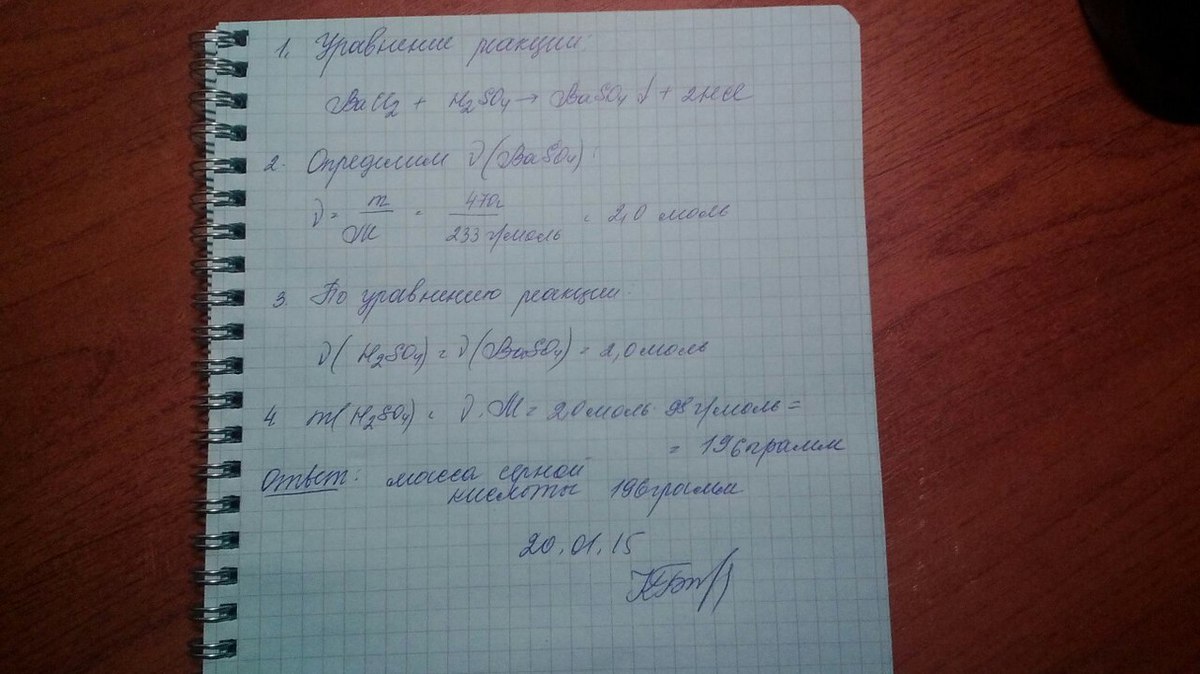 1. Уравнение реакции:
BaCl2 + H2SO4 → BaSO4↓ + 2HCl
2. Определим ν(BaSO4):
ν = m/M = 470г/233 г/моль = 2,0 моль
3. По уравнению реакции:
ν(H2SO4) = ν(BaSO4) = 2,0 моль
4 m(H2SO4) = ν·M = 2,0 моль 98 г/моль =
= 196 грамм
Ответ: масса серной
кислоты 196 грамм
20.01.15